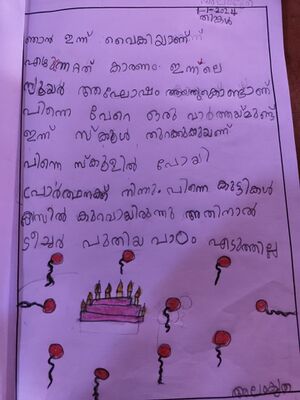 1-1-2024
തിങ്കൾ
ഞാൻ ഇന്ന് വൈകിയാണ്
എഴുന്നേറ്റത് കാരണം ഇന്നലെ
ന്യൂയർ ആഘോഷം ആയതുകൊണ്ടാണ്
പിന്നെ വേറെ ഒരു വാർത്തയുമുണ്ട്
ഇന്ന് സ്കൂൾ തുറക്കുകയാണ്
പിന്നെ സ്കൂളിൽ പോയി
പ്രാർത്ഥനക്ക് നിന്നു പിന്നെ കുട്ടികൾ
ക്ലാസിൽ കുറവായിരുന്നു അതിനാൽ
ടീച്ചർ പുതിയ പാഠം എടുത്തില്ല
അലംകൃത